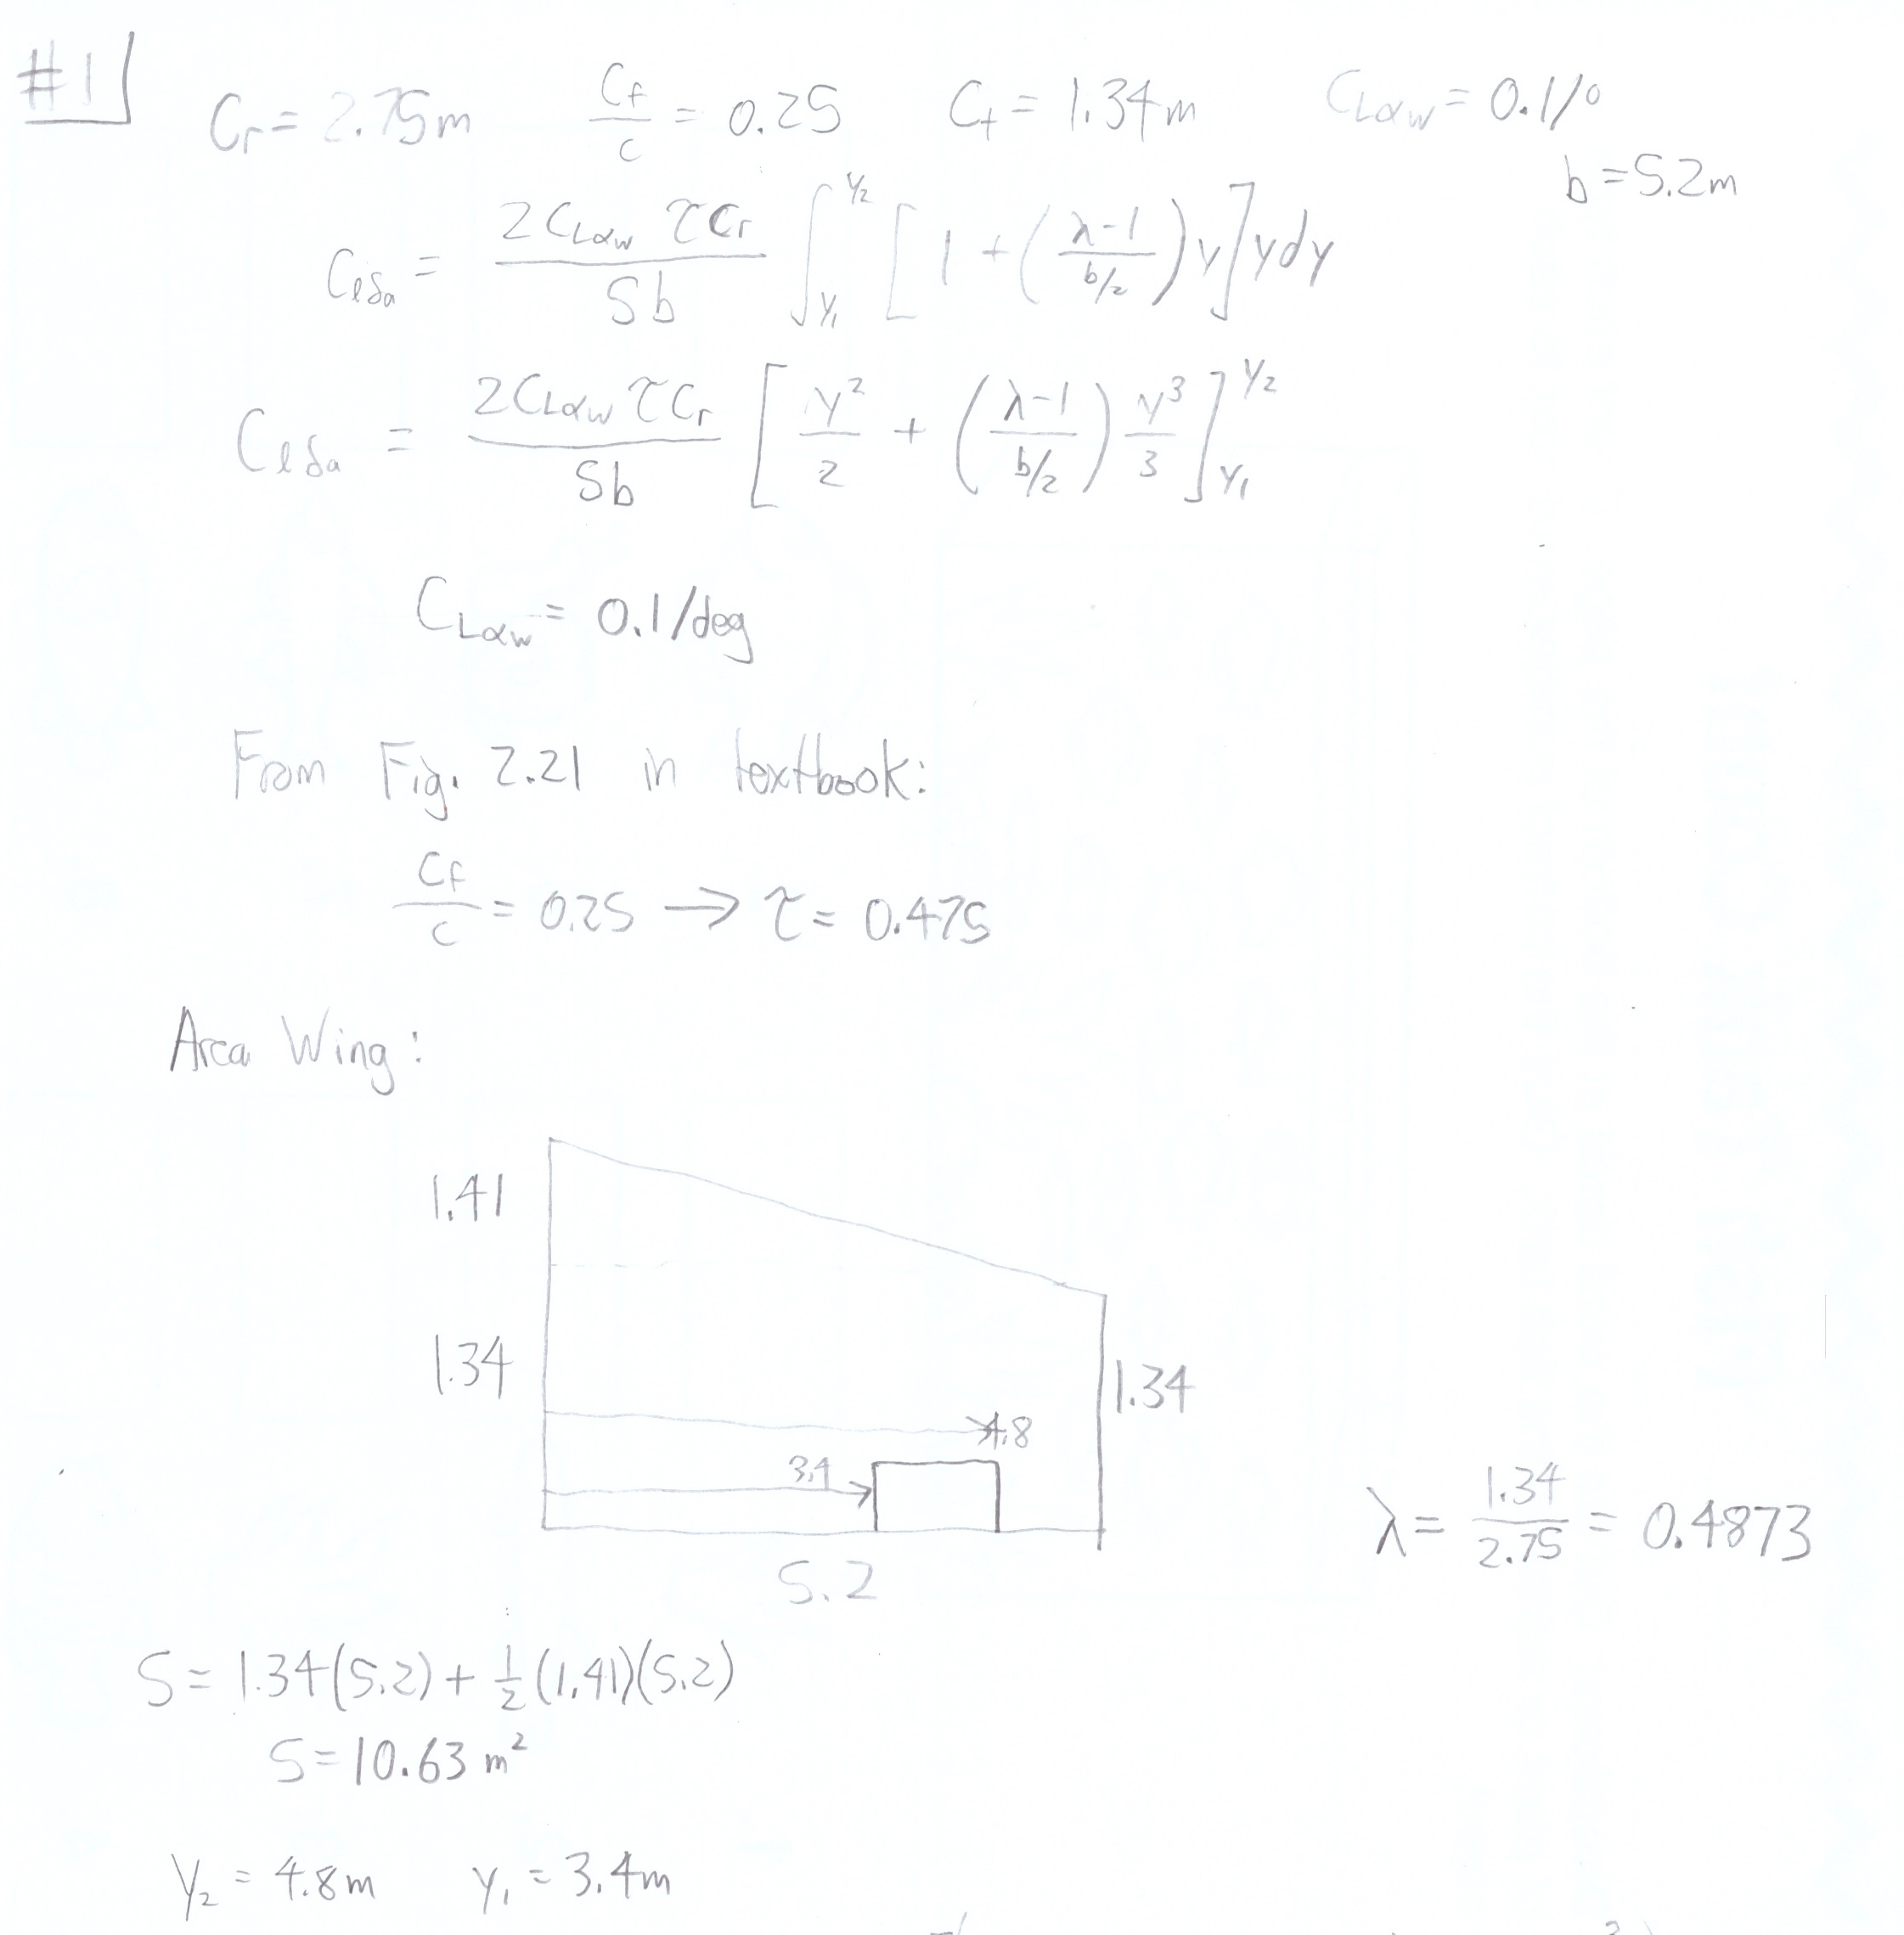 #1
Cr = 2.75m   Cf/c = 0.25   Ct = 1.34m   CLαw = 0.1/°
b = 5.2m
Clδa = 2CLαw τCr / Sb ∫_{y1}^{y2} [1 + ((λ-1)/(b/2)) y] y dy
Clδa = 2CLαw τCr / Sb [y²/2 + ((λ-1)/(b/2)) y³/3]_{y1}^{y2}
CLαw = 0.1/deg
From Fig. 2.21 in textbook:
Cf/c = 0.25 → τ = 0.475
Area Wing:
1.41
1.34
1.34
4.8
3.4
λ = 1.34/2.75 = 0.4873
5.2
S = 1.34(5.2) + 1/2(1.41)(5.2)
S = 10.63 m²
y2 = 4.8m   y1 = 3.4m